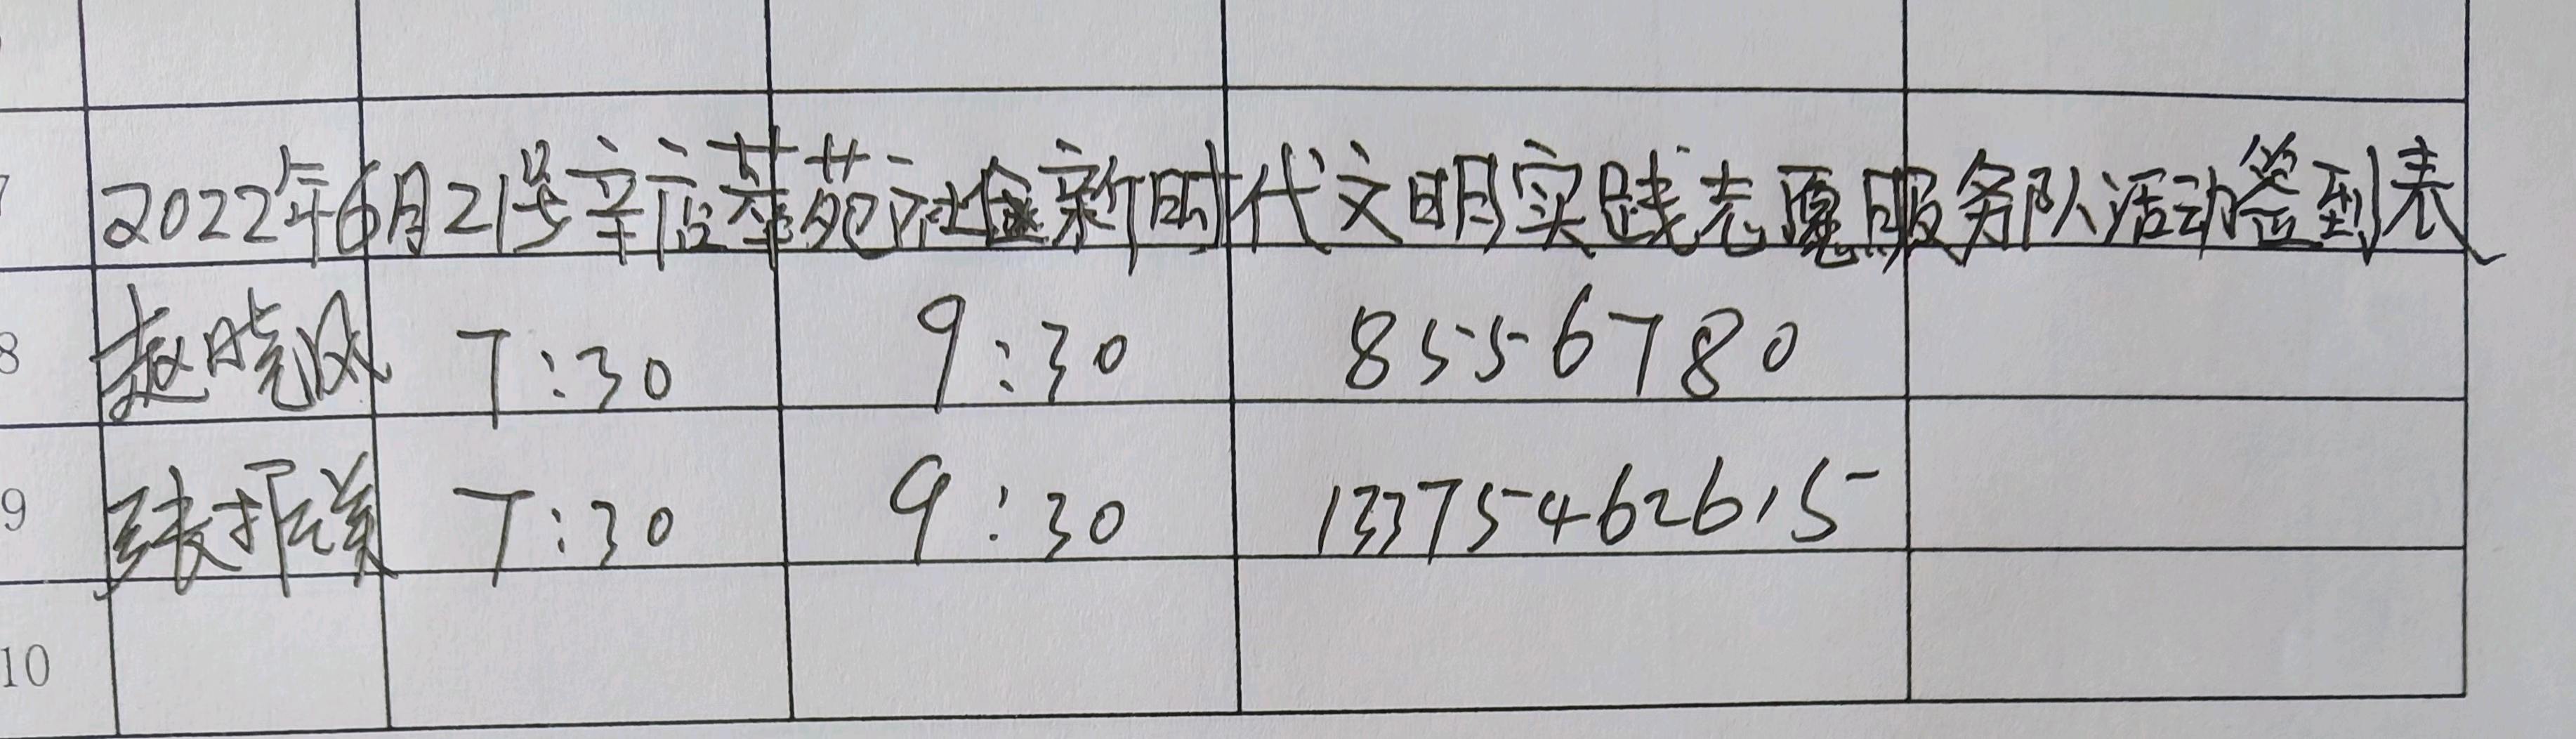 7 2022年6月21号辛店莘苑社区新时代文明实践志愿服务队活动签到表
8 赵晓风 7:30 9:30 8556780
9 张振美 7:30 9:30 13375462615
10